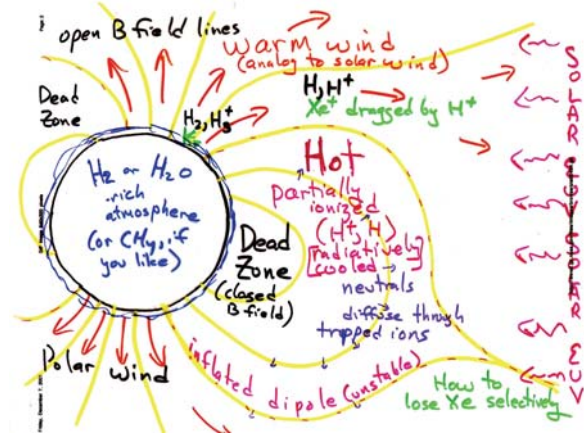 open B field lines
Warm wind
(analog to solar wind)
Dead
Zone
H2, H3+
H, H+
Xe+ dragged by H+
H2 or H2O
rich
atmosphere
(or CH4, if
you like)
Hot
partially
ionized
(H+, H)
[radiatively
cooled]
neutrals
diffuse through
trapped ions
Dead
Zone
(closed
B field)
Polar wind
inflated dipole (unstable)
How to
lose Xe selectively
SOLAR EUV SOLAR EUV